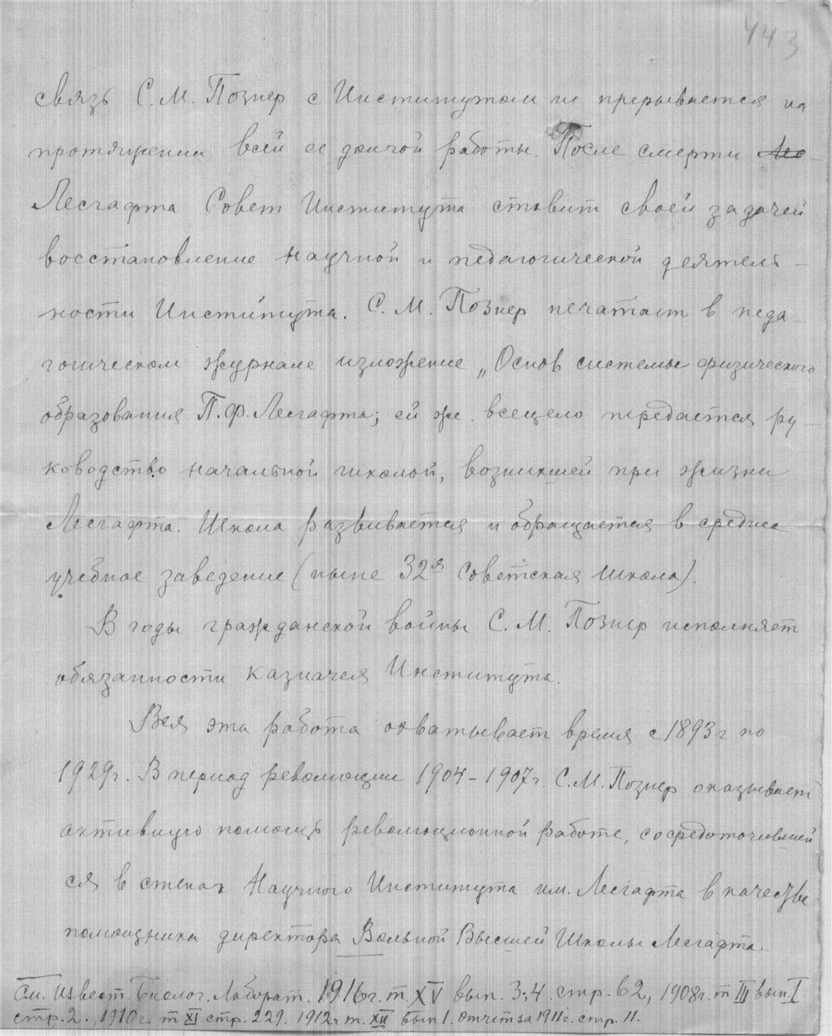 443
связь С. М. Познер с Институтом не прерывается на
протяжении всей ее долгой работы. После смерти
Лесгафта Совет Института ставит своей задачей
восстановление научной и педагогической деятель-
ности Института. С. М. Познер печатает в педа-
гогическом журнале изложение „Основ системы физического
образования П. Ф. Лесгафта; ей же всецело передается ру-
ководство начальной школой, возникшей при жизни
Лесгафта. Школа развивается и обращается в среднее
учебное заведение (ныне 32ая Советская школа).
В годы гражданской войны С. М. Познер исполняет
обязанности казначея Института.
Вся эта работа охватывает время с 1893г по
1929г. В период революции 1904-1907г. С. М. Познер оказывает
активную помощь революционной работе, сосредоточившей
ся в стенах Научного Института им. Лесгафта в качестве
помощника директора Вольной Высшей Школы Лесгафта.
См. Извест. Биолог. Лаборат. 1916г. т XV вып. 3-4. стр. 62, 1908г. т III вып I
стр. 2. 1910г. т XI стр. 229. 1912г. т. XII вып 1. отчет за 1911г. стр. 11.